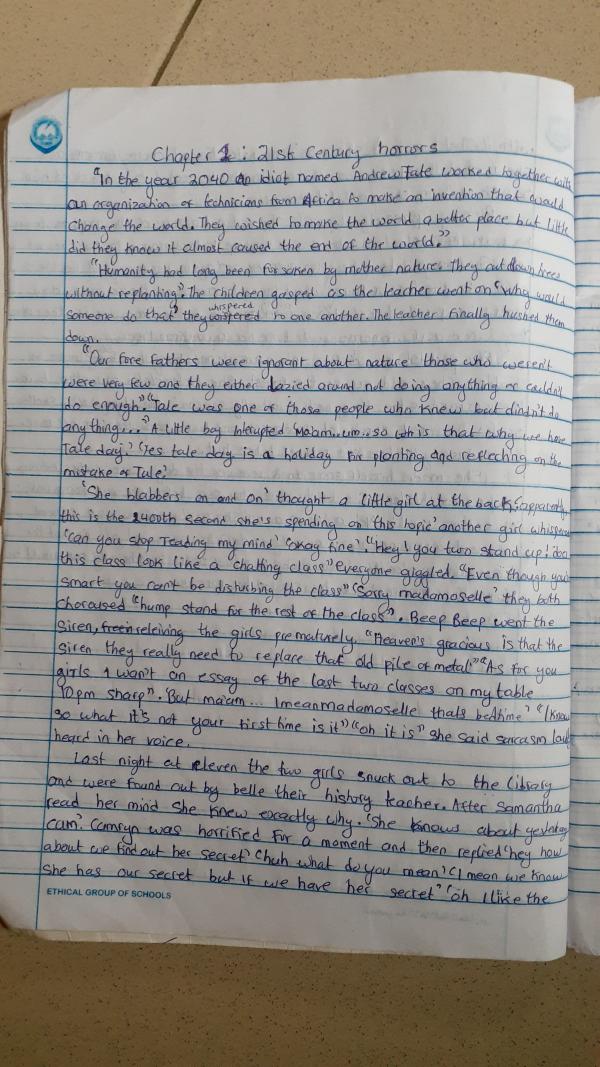 Chapter 1: 21st Century horrors
"In the year 2040 an idiot named Andrew Tate worked together with
an organization of technicians from Africa to make an invention that would
change the world. They wished to make the world a better place but little
did they know it almost caused the end of the world."
"Humanity had long been forsaken by mother nature. They cut down trees
without replanting" The children gasped as the teacher went on "Why would
someone do that" they whispered to one another. The teacher finally hushed them
down.
"Our fore fathers were ignorant about nature those who weren't
were very few and they either lazied around not doing anything or couldn't
do enough." "Tate was one of those people who knew but dindn't do
anything..." A little boy interupted "Ma'am..um..so is that why we have
Tate day." "Yes tate day is a holiday for planting and reflecting on the
mistake of Tate."
'She blabbers on and on' thought a little girl at the back. 'apparently
this is the 2400th second she's spending on this topic' another girl whispered
'can you stop reading my mind' 'okay fine'. "Hey! you two stand up! does
this class look like a chatting class" everyone giggled. "Even though you're
smart you can't be disturbing the class" "Sorry madamoselle" they both
choroused "hump stand for the rest of the class". Beep Beep went the
siren, releiving the girls prematurely "Heaven's gracious is that the
siren they really need to replace that old pile of metal" "As for you
girls I want an essay of the last two classes on my table
10pm sharp". But ma'am... I mean madamoselle thats bedtime" "I know
so what it's not your first time is it" "oh it is" she said sarcasm
heard in her voice.
Last night at eleven the two girls snuck out to the library
and were found out by belle their history teacher. After Samantha
read her mind she knew exactly why. 'She knows about yesterday
cam'. Camryn was horrified for a moment and then replied 'hey how
about we find out her secret' 'huh what do you mean' 'I mean we know
She has our secret but if we have her secret' 'oh I like the
ETHICAL GROUP OF SCHOOLS